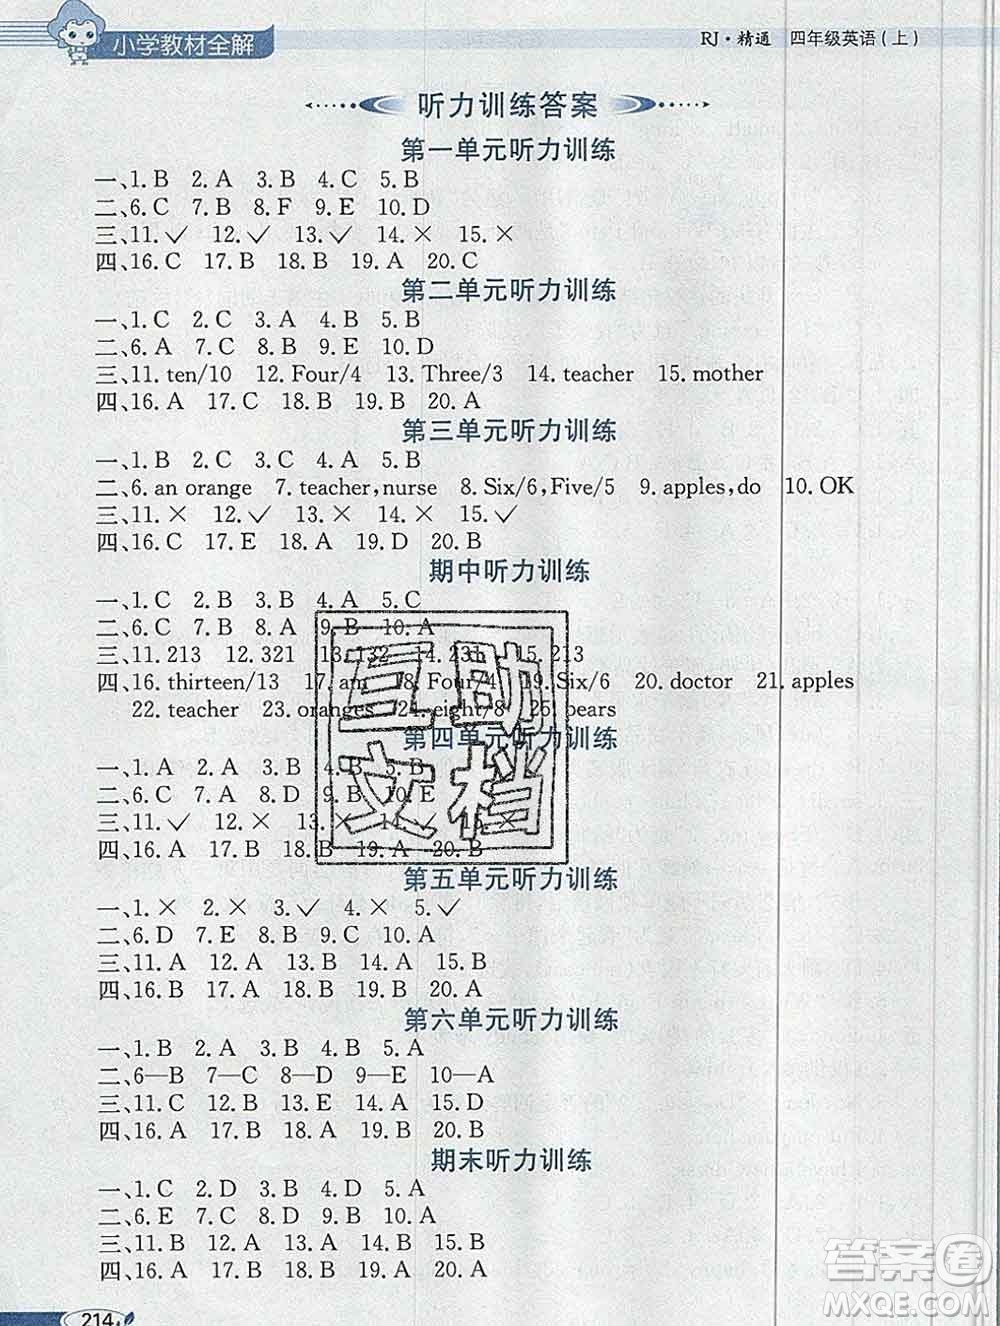 小学教材全解
RJ·精通 四年级英语(上)
听力训练答案
第一单元听力训练
一、1. B 2. A 3. B 4. C 5. B
二、6. C 7. B 8. F 9. E 10. D
三、11. ✓ 12. ✓ 13. ✓ 14. × 15. ×
四、16. C 17. B 18. B 19. A 20. C
第二单元听力训练
一、1. C 2. C 3. A 4. B 5. B
二、6. A 7. B 8. C 9. E 10. D
三、11. ten/10 12. Four/4 13. Three/3 14. teacher 15. mother
四、16. A 17. C 18. B 19. B 20. A
第三单元听力训练
一、1. B 2. C 3. C 4. A 5. B
二、6. an orange 7. teacher,nurse 8. Six/6,Five/5 9. apples,do 10. OK
三、11. × 12. ✓ 13. × 14. × 15. ✓
四、16. C 17. E 18. A 19. D 20. B
期中听力训练
一、1. C 2. B 3. B 4. A 5. C
二、6. C 7. B 8. A 9. B 10. A
三、11. 213 12. 321 13. 132 14. 231 15. 213
四、16. thirteen/13 17. am 18. Four/4 19. Six/6 20. doctor 21. apples
22. teacher 23. oranges 24. eight/8 25. pears
第四单元听力训练
一、1. A 2. A 3. B 4. B 5. B
二、6. C 7. A 8. D 9. B 10. E
三、11. ✓ 12. × 13. × 14. ✓ 15. ×
四、16. A 17. B 18. B 19. A 20. B
互助
文档
第五单元听力训练
一、1. × 2. × 3. ✓ 4. × 5. ✓
二、6. D 7. E 8. B 9. C 10. A
三、11. A 12. A 13. B 14. A 15. B
四、16. B 17. B 18. A 19. B 20. A
第六单元听力训练
一、1. B 2. A 3. B 4. B 5. A
二、6—B 7—C 8—D 9—E 10—A
三、11. B 12. C 13. B 14. A 15. D
四、16. A 17. A 18. A 19. B 20. B
期末听力训练
一、1. C 2. D 3. D 4. B 5. B
二、6. E 7. D 8. C 9. B 10. A
三、11. B 12. A 13. B 14. A 15. B
四、16. A 17. A 18. B 19. B 20. A
214
答案圈
MXQE.COM